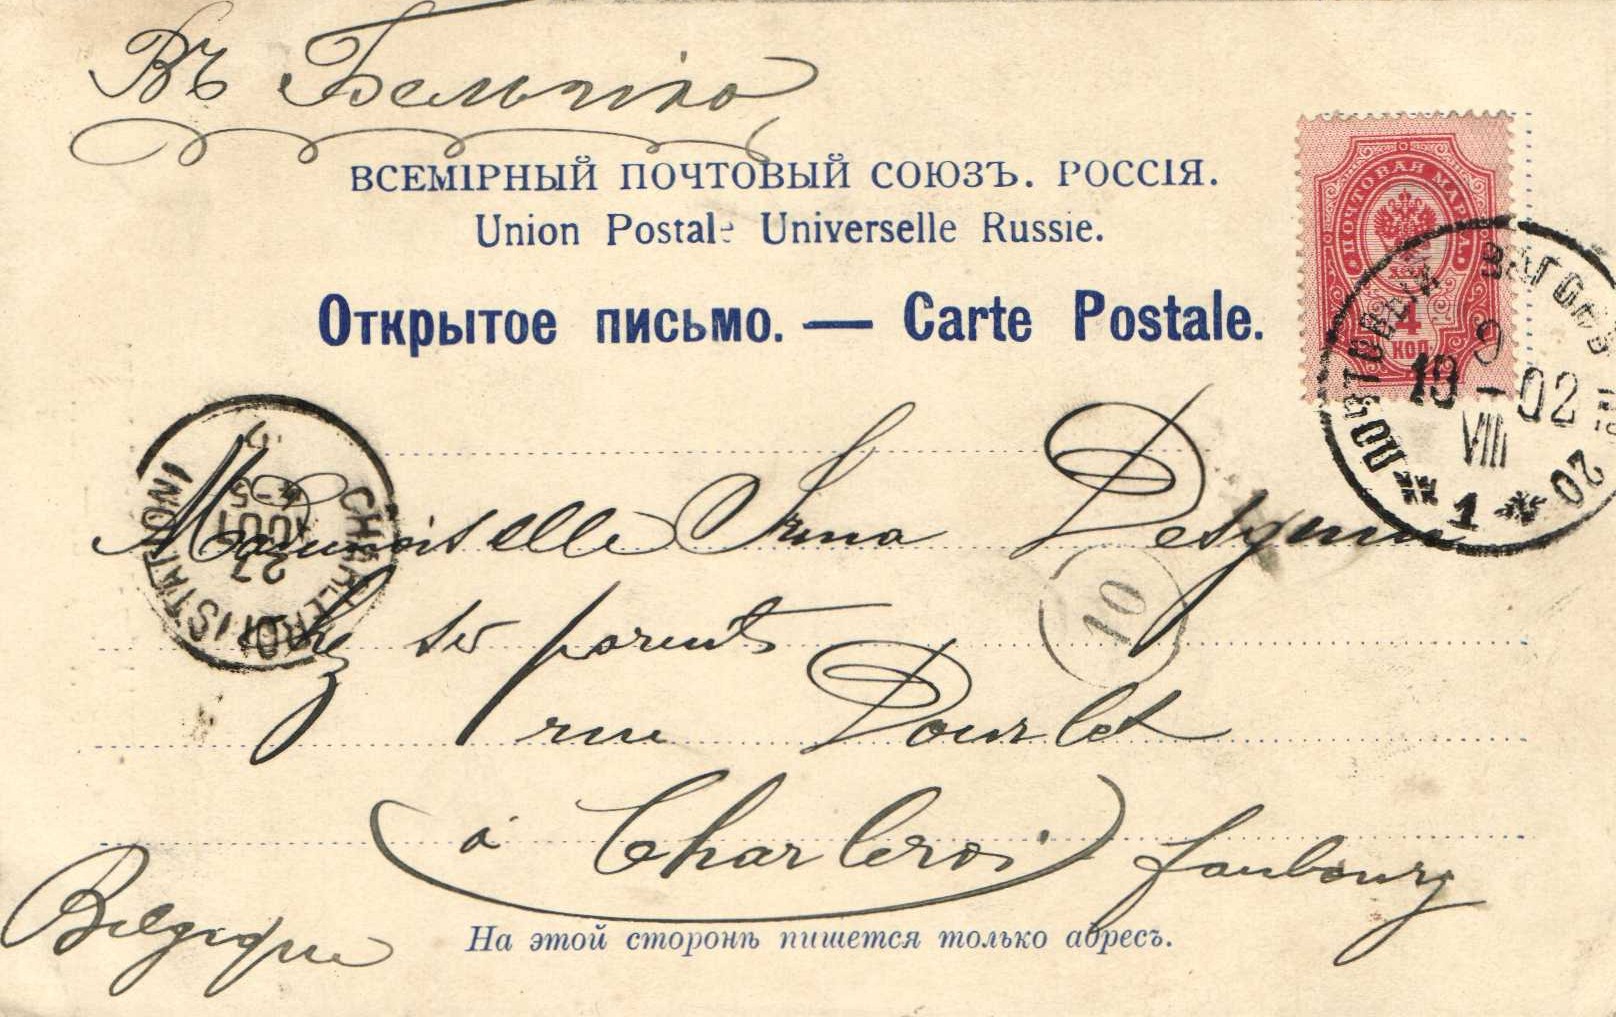 Въ Бельгію
ВСЕМІРНЫЙ ПОЧТОВЫЙ СОЮЗЪ. РОССІЯ.
Union Postale Universelle Russie.
Открытое письмо. — Carte Postale.
ПОЧТОВАЯ МАРКА
4
КОП.
ПОЧТОВЫЙ ВАГОНЪ № 20
1
9
19 - 02
VIII
CHARLEROI (STATION)
5
4-5
AOUT
27
Mademoiselle Irma
chez ses parents
10
rue Dourlet
à Charleroi faubourg
Belgique
На этой сторонѣ пишется только адресъ.